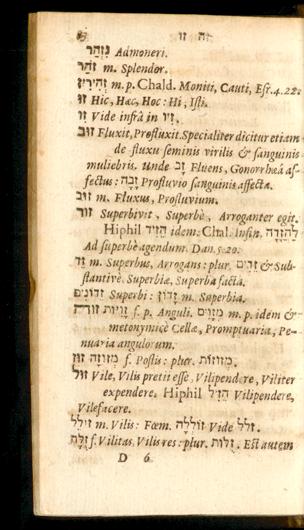 זה זו
נִזְהַר Admoneri.
זֹהַר m. Splendor.
זְהִירִין m. p. Chald. Moniti, Cauti, Esr. 4. 22.
זוּ Hic, Hæc, Hoc: Hi, Isti.
זִו Vide infrà in זִיו.
זוּב Fluxit, Profluxit. Specialiter dicitur etiam
de fluxu seminis virilis & sanguinis
muliebris. Unde זָב Fluens, Gonorrhœâ af-
fectus: זָבָה Profluvio sanguinis affecta.
זוֹב m. Fluxus, Profluvium.
זוּד Superbivit, Superbè, Arroganter egit.
Hiphil הֵזִיד idem: Chal. Infin. לַהֲזָדָה
Ad superbè agendum. Dan. 5. 20.
זֵד m. Superbus, Arrogans: plur. זֵדִים & Sub-
stantivè. Superbiæ, Superba facta.
זֵדוֹנִים Superbi: זָדוֹן m. Superbia.
זוה זָוִיּוֹת f. p. Anguli. מְזָוִים m. p. idem &
metonymicè Cellæ, Promptuaria, Pe-
nuaria angulorum.
זוז מְזוּזָה f. Postis: plur. מְזוּזוֹת.
זוּל Vile, Vilis pretii esse, Vilipendere, Viliter
expendere. Hiphil הֵזִיל Vilipendere,
Vilefacere.
זוֹלֵל m. Vilis: Fœm. זוֹלֵלָה Vide זלל.
זֻלָּה f. Vilitas, Vilis res: plur. זֻלּוֹת. Est autem
D 6